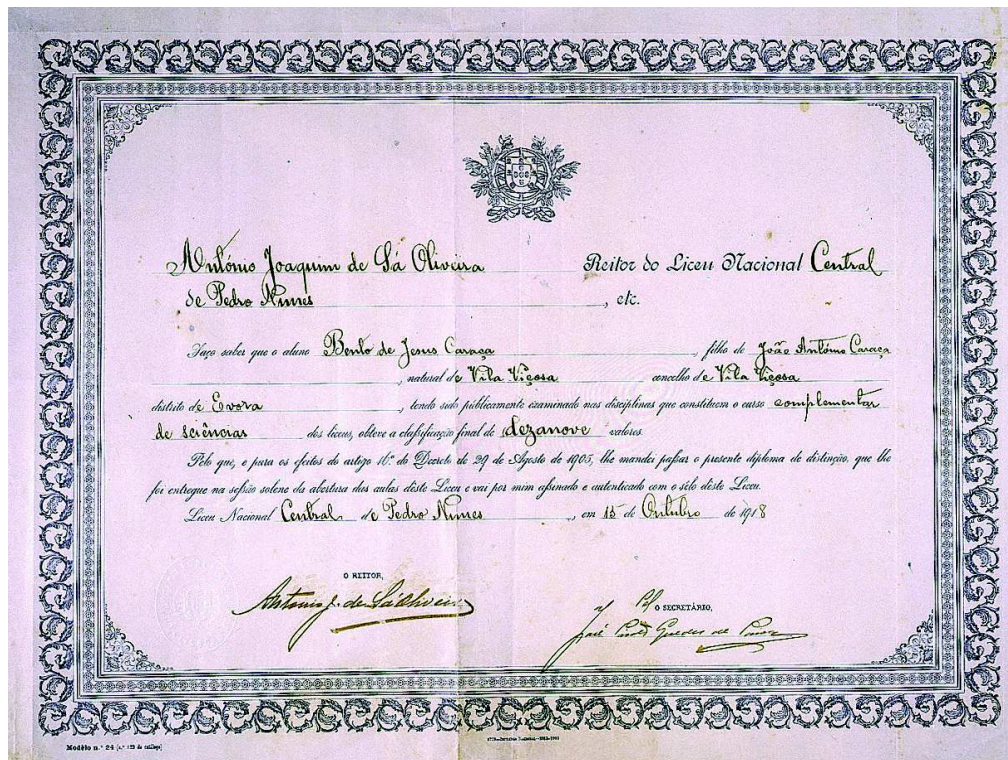 António Joaquim de Sá Oliveira Reitor do Liceu Nacional Central
de Pedro Nunes, etc.
Faço saber que o aluno Bento de Jesus Caraça, filho de João António Caraça
, natural de Vila Viçosa concelho de Vila Viçosa
distrito de Evora, tendo sido públicamente examinado nas disciplinas que constituem o curso complementar
de sciências dos liceus, obteve a classificação final de dezanove valores.
Pelo que, e para os efeitos do artigo 16.º do Decreto de 29 de Agosto de 1905, lhe mandei passar o presente diploma de distinção, que lhe
foi entregue na sessão solene da abertura das aulas dêste Liceu e vai por mim assinado e autenticado com o sêlo dêste Liceu.
Liceu Nacional Central de Pedro Nunes, em 15 de Outubro de 1918
O REITOR,
António J. de Sá Oliveira
O SECRETÁRIO,
José Guedes de
Modêlo n.º 24 (n.º 123 do catálogo)